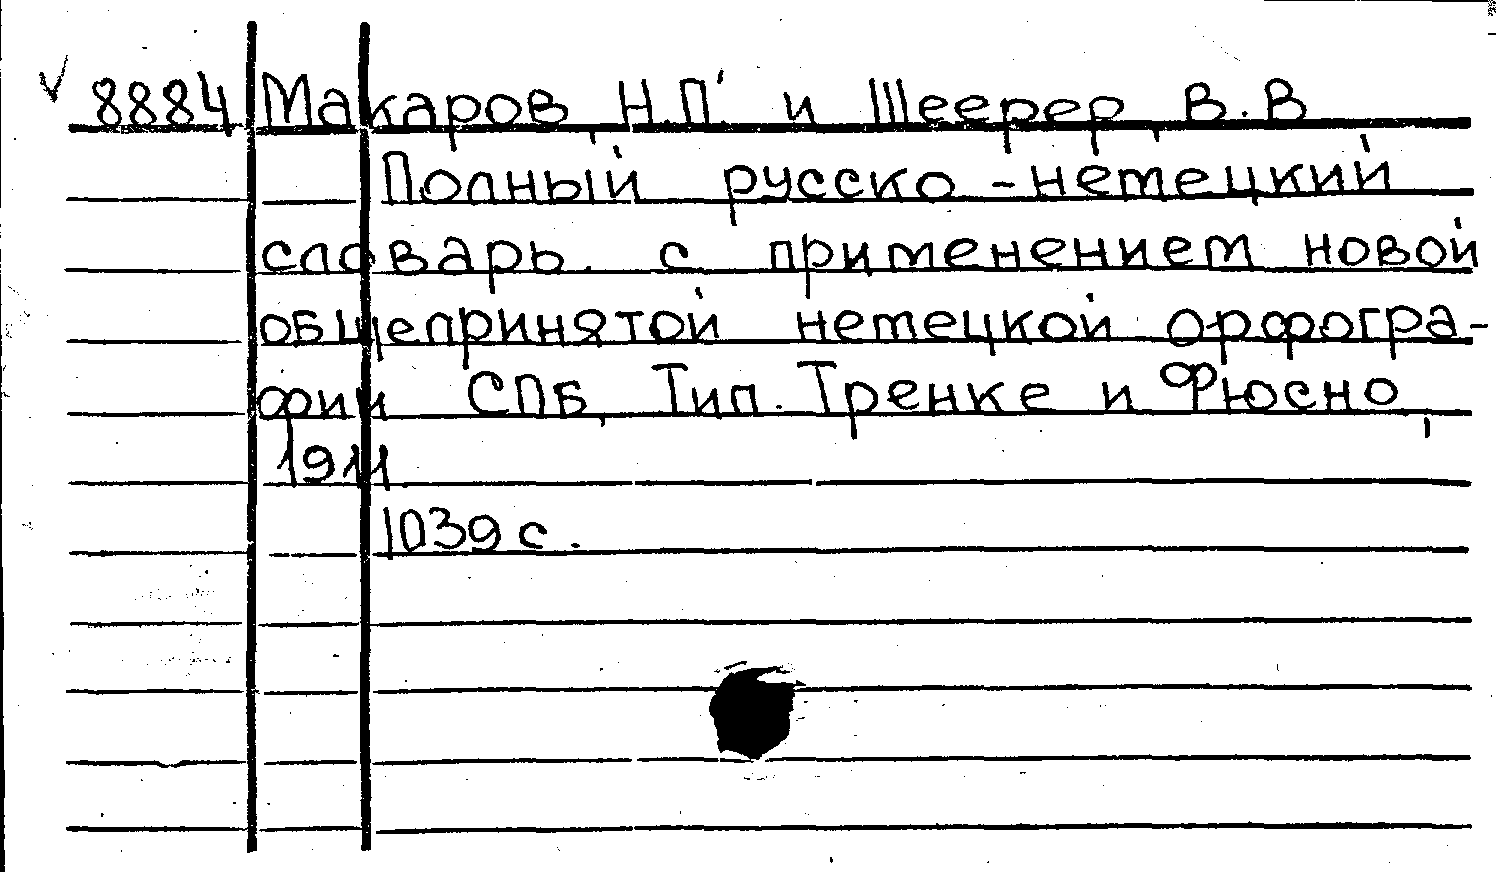 8884 Макаров, Н.П. и Шеерер, В.В
Полный русско-немецкий
словарь. с применением новой
общепринятой немецкой орфогра-
фии СПб, Тип. Тренке и Фюсно,
1911
1039 с.